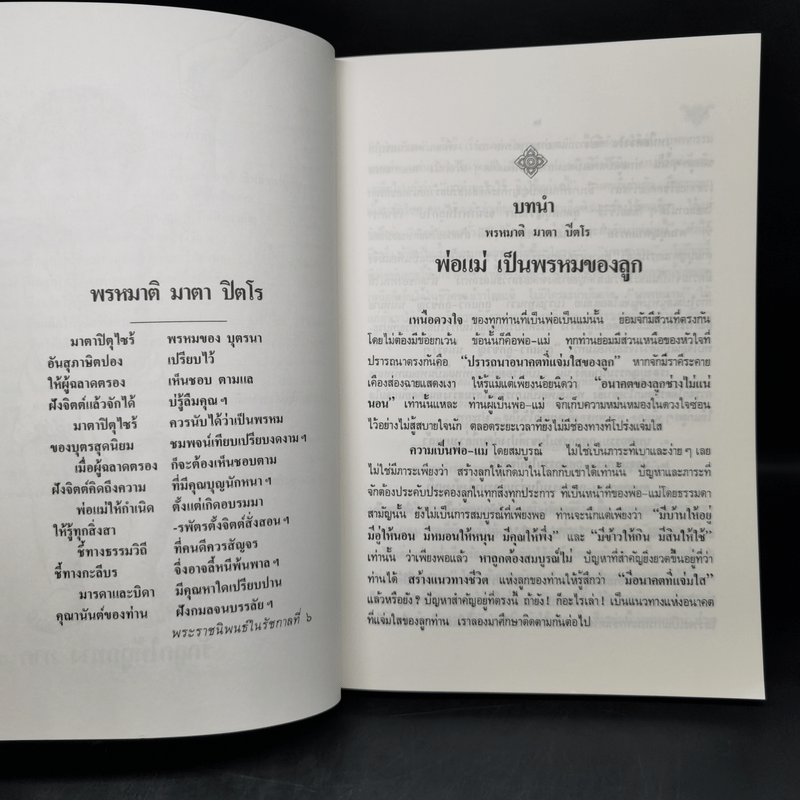 พรหมาติ มาตา ปิตโร
มาตาปิตุไซร้ พรหมของ บุตรนา
อันสุภาษิตปอง เปรียบไว้
ให้ผู้ฉลาดตรอง เห็นชอบ ตามแล
ฝังจิตต์แล้วจักได้ บ่รู้ลืมคุณ ฯ
มาตาปิตุไซร้ ควรนับได้ว่าเป็นพรหม
ของบุตรสุดนิยม ชมพจน์เทียบเปรียบงดงาม ฯ
เมื่อผู้ฉลาดตรอง ก็จะต้องเห็นชอบตาม
ฝังจิตต์คิดถึงความ ที่มีคุณบุญนักหนา ฯ
พ่อแม่ให้กำเนิด ตั้งแต่เกิดอบรมมา
ให้รู้ทุกสิ่งสา -รพัตรตั้งจิตต์สั่งสอน ฯ
ชี้ทางธรรมวิถี ที่คนดีควรสัญจร
ชี้ทางกะลีบร จึ่งอาจลี้หนีพ้นพาล ฯ
มารดาและบิดา มีคุณหาใดเปรียบปาน
คุณานันต์ของท่าน ฝังกมลจนบรรลัย ฯ
พระราชนิพนธ์ในรัชกาลที่ ๖
บทนำ
พรหมาติ มาตา ปิตโร
พ่อแม่ เป็นพรหมของลูก
เหนือดวงใจ ของทุกท่านที่เป็นพ่อเป็นแม่นั้น ย่อมจักมีส่วนที่ตรงกัน
โดยไม่ต้องมีข้อยกเว้น ข้อนั้นก็คือพ่อ-แม่ ทุกท่านย่อมมีส่วนเหนือของหัวใจที่
ปรารถนาตรงกันคือ “ปรารถนาอนาคตที่แจ่มใสของลูก” หากจักมีราคีระคาย
เคืองส่องฉายแสดงเงา ให้รู้แม้แต่เพียงน้อยนิดว่า “อนาคตของลูกช่างไม่แน่
นอน” เท่านั้นแหละ ท่านผู้เป็นพ่อ-แม่ จักเก็บความหม่นหมองในดวงใจซ่อน
ไว้อย่างไม่สู้สบายใจนัก ตลอดระยะเวลาที่ยังไม่มีช่องทางที่โปร่งแจ่มใส
ความเป็นพ่อ-แม่ โดยสมบูรณ์ ไม่ใช่เป็นภาระที่เบาและง่าย ๆ เลย
ไม่ใช่มีภาระเพียงว่า สร้างลูกให้เกิดมาในโลกกับเขาได้เท่านั้น ปัญหาและภาระที่
จักต้องประคับประคองลูกในทุกสิ่งทุกประการ ที่เป็นหน้าที่ของพ่อ-แม่โดยธรรมดา
สามัญนั้น ยังไม่เป็นการสมบูรณ์ที่เพียงพอ ท่านจะนึกแต่เพียงว่า “มีบ้านให้อยู่
มีอู่ให้นอน มีหมอนให้หนุน มีคุณให้พึ่ง” และ “มีข้าวให้กิน มีสินให้ใช้”
เท่านั้น ว่าเพียงพอแล้ว หาถูกต้องสมบูรณ์ไม่ ปัญหาที่สำคัญยิ่งยวดขึ้นอยู่ที่ว่า
ท่านได้ สร้างแนวทางชีวิต แห่งลูกของท่านให้รู้สึกว่า “มีอนาคตที่แจ่มใส”
แล้วหรือยัง? ปัญหาสำคัญอยู่ที่ตรงนี้ ถ้ายัง! ก็อะไรเล่า! เป็นแนวทางแห่งอนาคต
ที่แจ่มใสของลูกท่าน เราลองมาศึกษาติดตามกันต่อไป